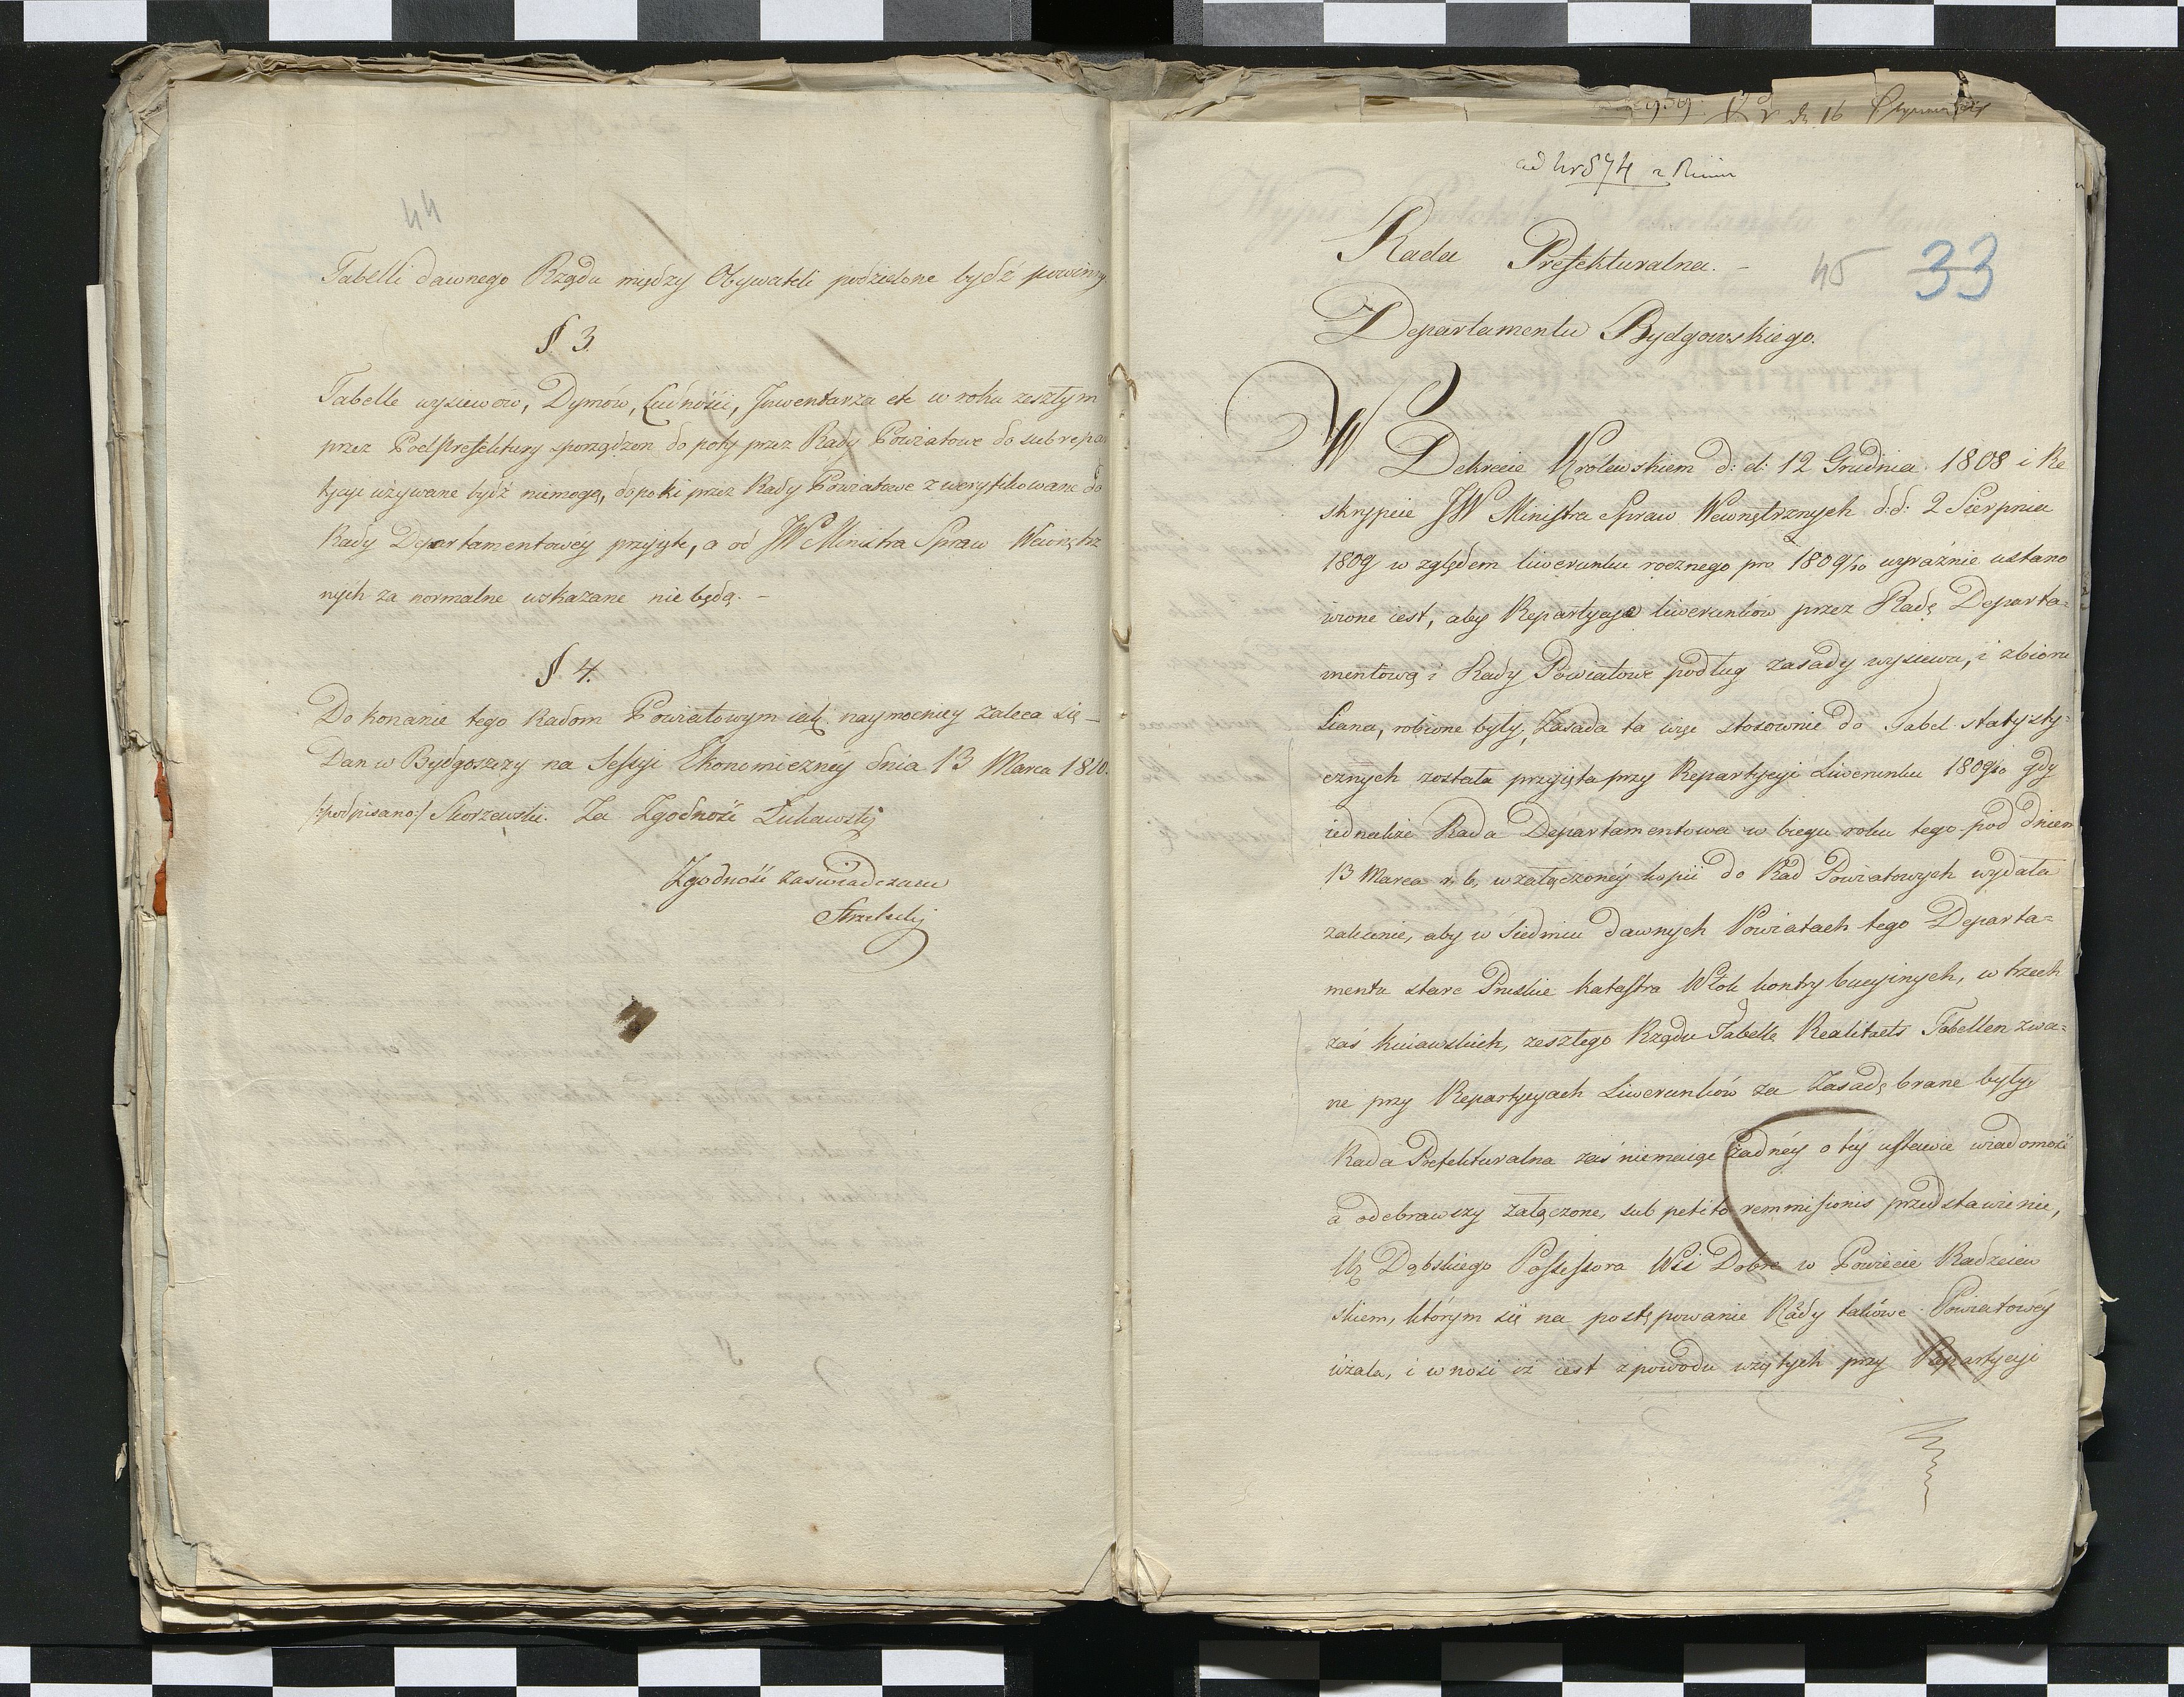 44
Tabelli dawnego Rządu między Obywateli podzielone bydź powinny.
§ 3.
Tabelle wysiewów, Dymów, Ludności, Inwentarza etc w roku zeszłym
przez PodPrefektury sporządzon do poty przez Rady Powiatowe do subrepar
tycyi używane bydź niemogą, dopoki przez Rady Powiatowe zweryfikowane do
Rady Departamentowéy przyięte, a od JW Ministra Spraw Wewnętrz
nych za normalne wskazane nie będą. –
§ 4.
Dokonanie tego Radom Powiatowym iak naymocniey zaleca się –
Dan w Bydgoszczy na Sessyi Ekonomicznéy dnia 13 Marca 1810.
/:podpisano:/ Skorzewski. Za Zgodność Łukawski
Zgodność zaswiadczam
ad Nr 874
Rada Prefekturalna. –
45 33
Departamentu Bydgowskiego.
W Dekrecie Królewskiem d: d: 12 Grudnia 1808 i Re
skrypcie JW Ministra Spraw Wewnętrznych d: d: 2 Sierpnia
1809 względem liwerunku rocznego pro 1809/10 wyraźnie ustano
wione iest, aby Repartycye liwerunków przez Radę Departa=
mentową i Rady Powiatowe podług zasady wysiewu, i zbioru
Siana, robione były, Zasada ta więc stosownie do Tabel statysty=
cznych została przyięta przy Repartycyi Liwerunku 1809/10 gdy
iednakże Rada Departamentowa w biegu roku tego pod dniem
13 Marca r. b. w załączonéy kopii do Rad Powiatowych wydała
zalecenie, aby w siedmiu dawnych Powiatach tego Departa=
mentu stare Pruskie katastra Włok kontrybucyinych, w trzech
zaś kuiawskich, zeszłego Rządu Tabelle Realitaets Tabellen zwa=
ne przy Repartycyach Liwerunków za Zasadę brane były,
Rada Prefekturalna zaś niemaiąc żadnéy o téy ustawie wiadomości
a odebrawszy załączone, sub petito remmissionis przedstawienie,
Ur Dąbskiego Possessora Wsi Dobre w Powiecie Radzieiew
skiem, którym się na postępowanie Rady takowe Powiatowéy
użala, i wnosi iż iest z powodu wziętych przy Repartycyi